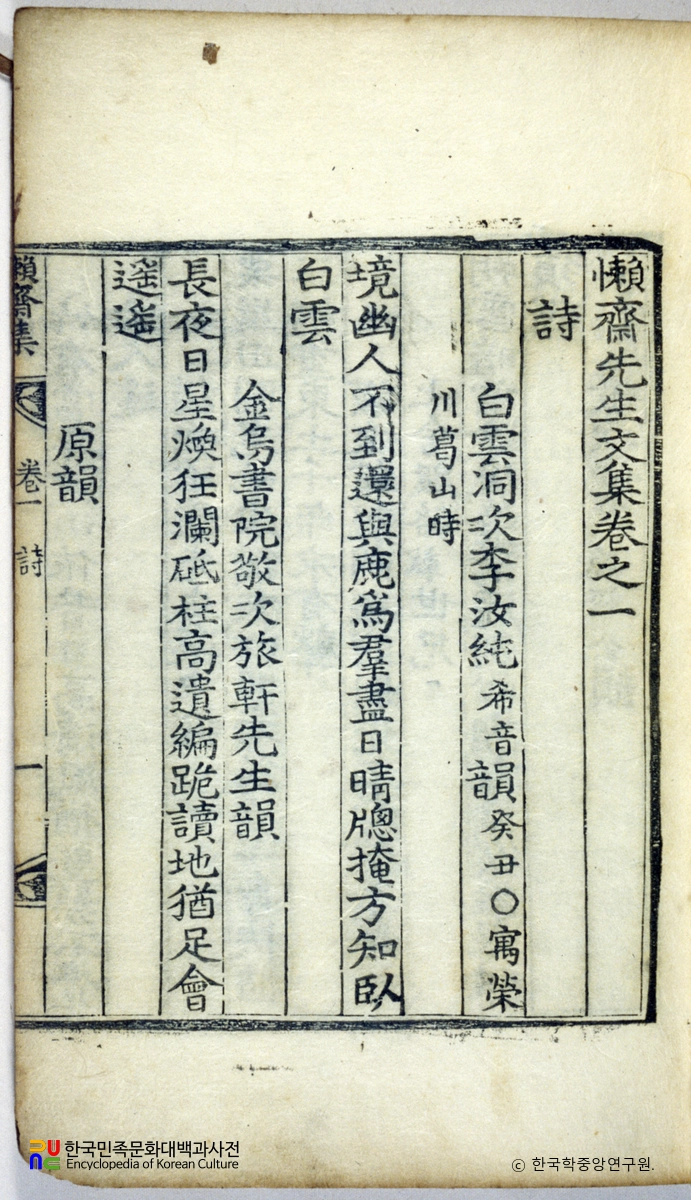 懶齋先生文集卷之一
詩
白雲洞次李汝純希音韻癸丑○寓榮
川葛山時
境幽人不到還與鹿爲羣盡日晴牕掩方知臥
白雲
金烏書院敬次旅軒先生韻
長夜日星煥狂瀾砥柱高遺編跪讀地猶足會
遥遥
原韻
懶齋集
卷一
詩
一
한국민족문화대백과사전
Encyclopedia of Korean Culture
ⓒ 한국학중앙연구원.